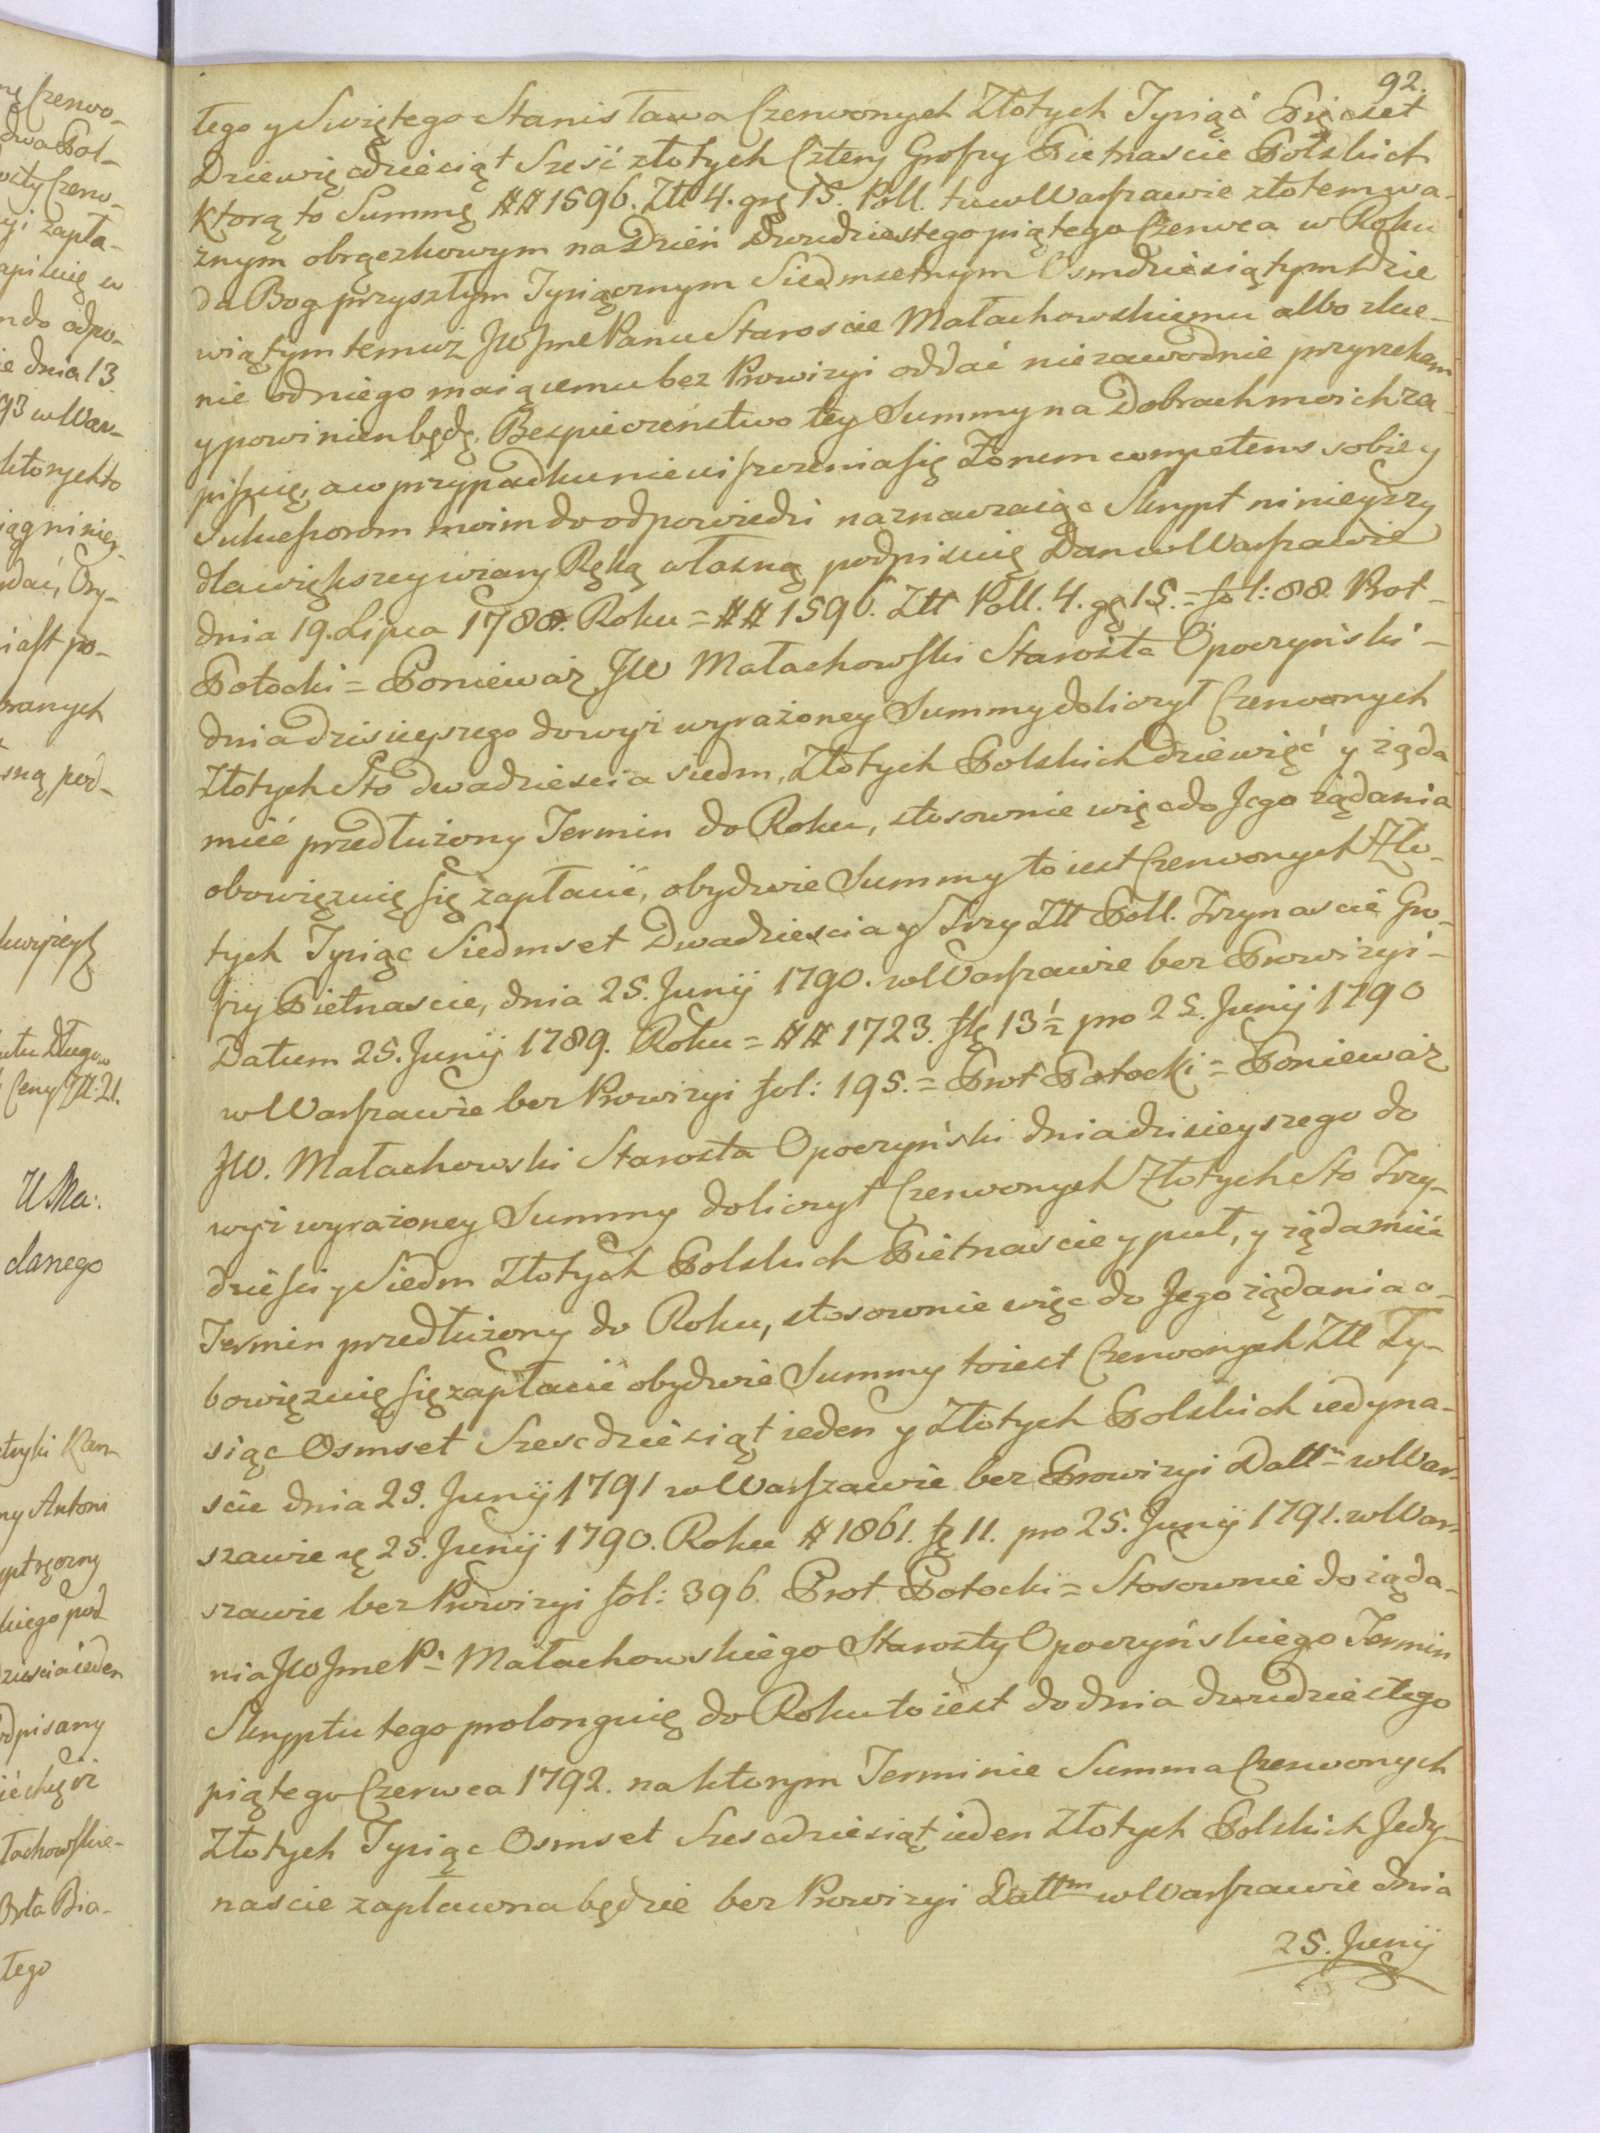 92.
łego y Swiętego Stanisława Czerwonych Złotych Tysiąc Pięcset
Dziewięcdziesiąt Szesć złotych Cztery Groszy Pietnascie Polskich
ktorą to Summę ## 1596. Złł 4. grę 15. Poll. tu w Warszawie złotem wa-
żnym obrączkowym na Dzień Dwudziestego piątego Czerwca w Roku
da Bog przyszłym Tysiącznym Siedmsetnym Osmdziesiątym Dzie
wiątym temuż JW Jme Panu Staroscie Małachowskiemu albo zlece-
nie od niego maiącemu bez Prowizyi oddać niezawodnie przyrzekam
y powinien będę, Bezpieczenstwo tey Summy na Dobrach moich za-
pisuię, a w przypadku nieuiszczenia się Forum competens sobie y
Sukcessorom moim do odpowiedzi naznaczaiąc Skrypt ninieyszy
dla większey wiary Ręką własną podpisuię Dan w Warszawie
dnia 19. Lipca 1788. Roku = ## 1596. Złł Poll. 4. gę 15. = fol: 88. Prot-
Potocki = Ponieważ JW Małachowski Starosta Opoczyński -
dnia dzisieyszego do wyż wyrażoney Summy doliczył Czerwonych
Złotych Sto dwadziescia siedm, Złotych Polskich dziewięć y żąda
mieć przedłużony Termin do Roku, stosownie więc do Jego żądania
obowiązuię się zapłacić, obydwie Summy to iest Czerwonych Zło-
tych Tysiąc Siedmset Dwadziescia y Trzy Złł Poll. Trzynascie Gro-
szy Pietnascie, dnia 25. Junij 1790. w Warszawie bez Prowizyi -
Datum 25. Junij 1789. Roku = ## 1723. fłę 13 1/2 pro 25. Junij 1790
w Warszawie bez Prowizyi fol: 195. = Prot Potocki = Ponieważ
JW. Małachowski Starosta Opoczyński dnia dzisieyszego do
wyż wyrażoney Summy doliczył Czerwonych Złotych Sto Trzy-
dziesci y Siedm Złotych Polskich Pietnascie y puł, y żąda mieć
Termin przedłużony do Roku, stosownie więc do Jego żądania o-
bowiązuię się zapłacić obydwie Summy to iest Czerwonych Złł Ty-
siąc Osmset Szescdziesiąt ieden y Złotych Polskich iedyna-
scie dnia 25. Junij 1791 w Warszawie bez Prowizyi Datt~ w War-
szawie ę 25. Junij 1790. Roku # 1861. fę 11. pro 25. Junij 1791. w War-
szawie bez Prowizyi fol: 396. Prot Potocki = Stosownie do żąda-
nia JW Jme P~ Małachowskiego Starosty Opoczyńskiego Termin
Skryptu tego prolonguię do Roku to iest do dnia dwudziestego
piątego Czerwca 1792. na ktorym Terminie Summa Czerwonych
Złotych Tysiąc Osmset Szescdziesiąt ieden Złotych Polskich Jedy-
nascie zapłacona będzie bez Prowizyi Dattm w Warszawie dnia
25. Junij